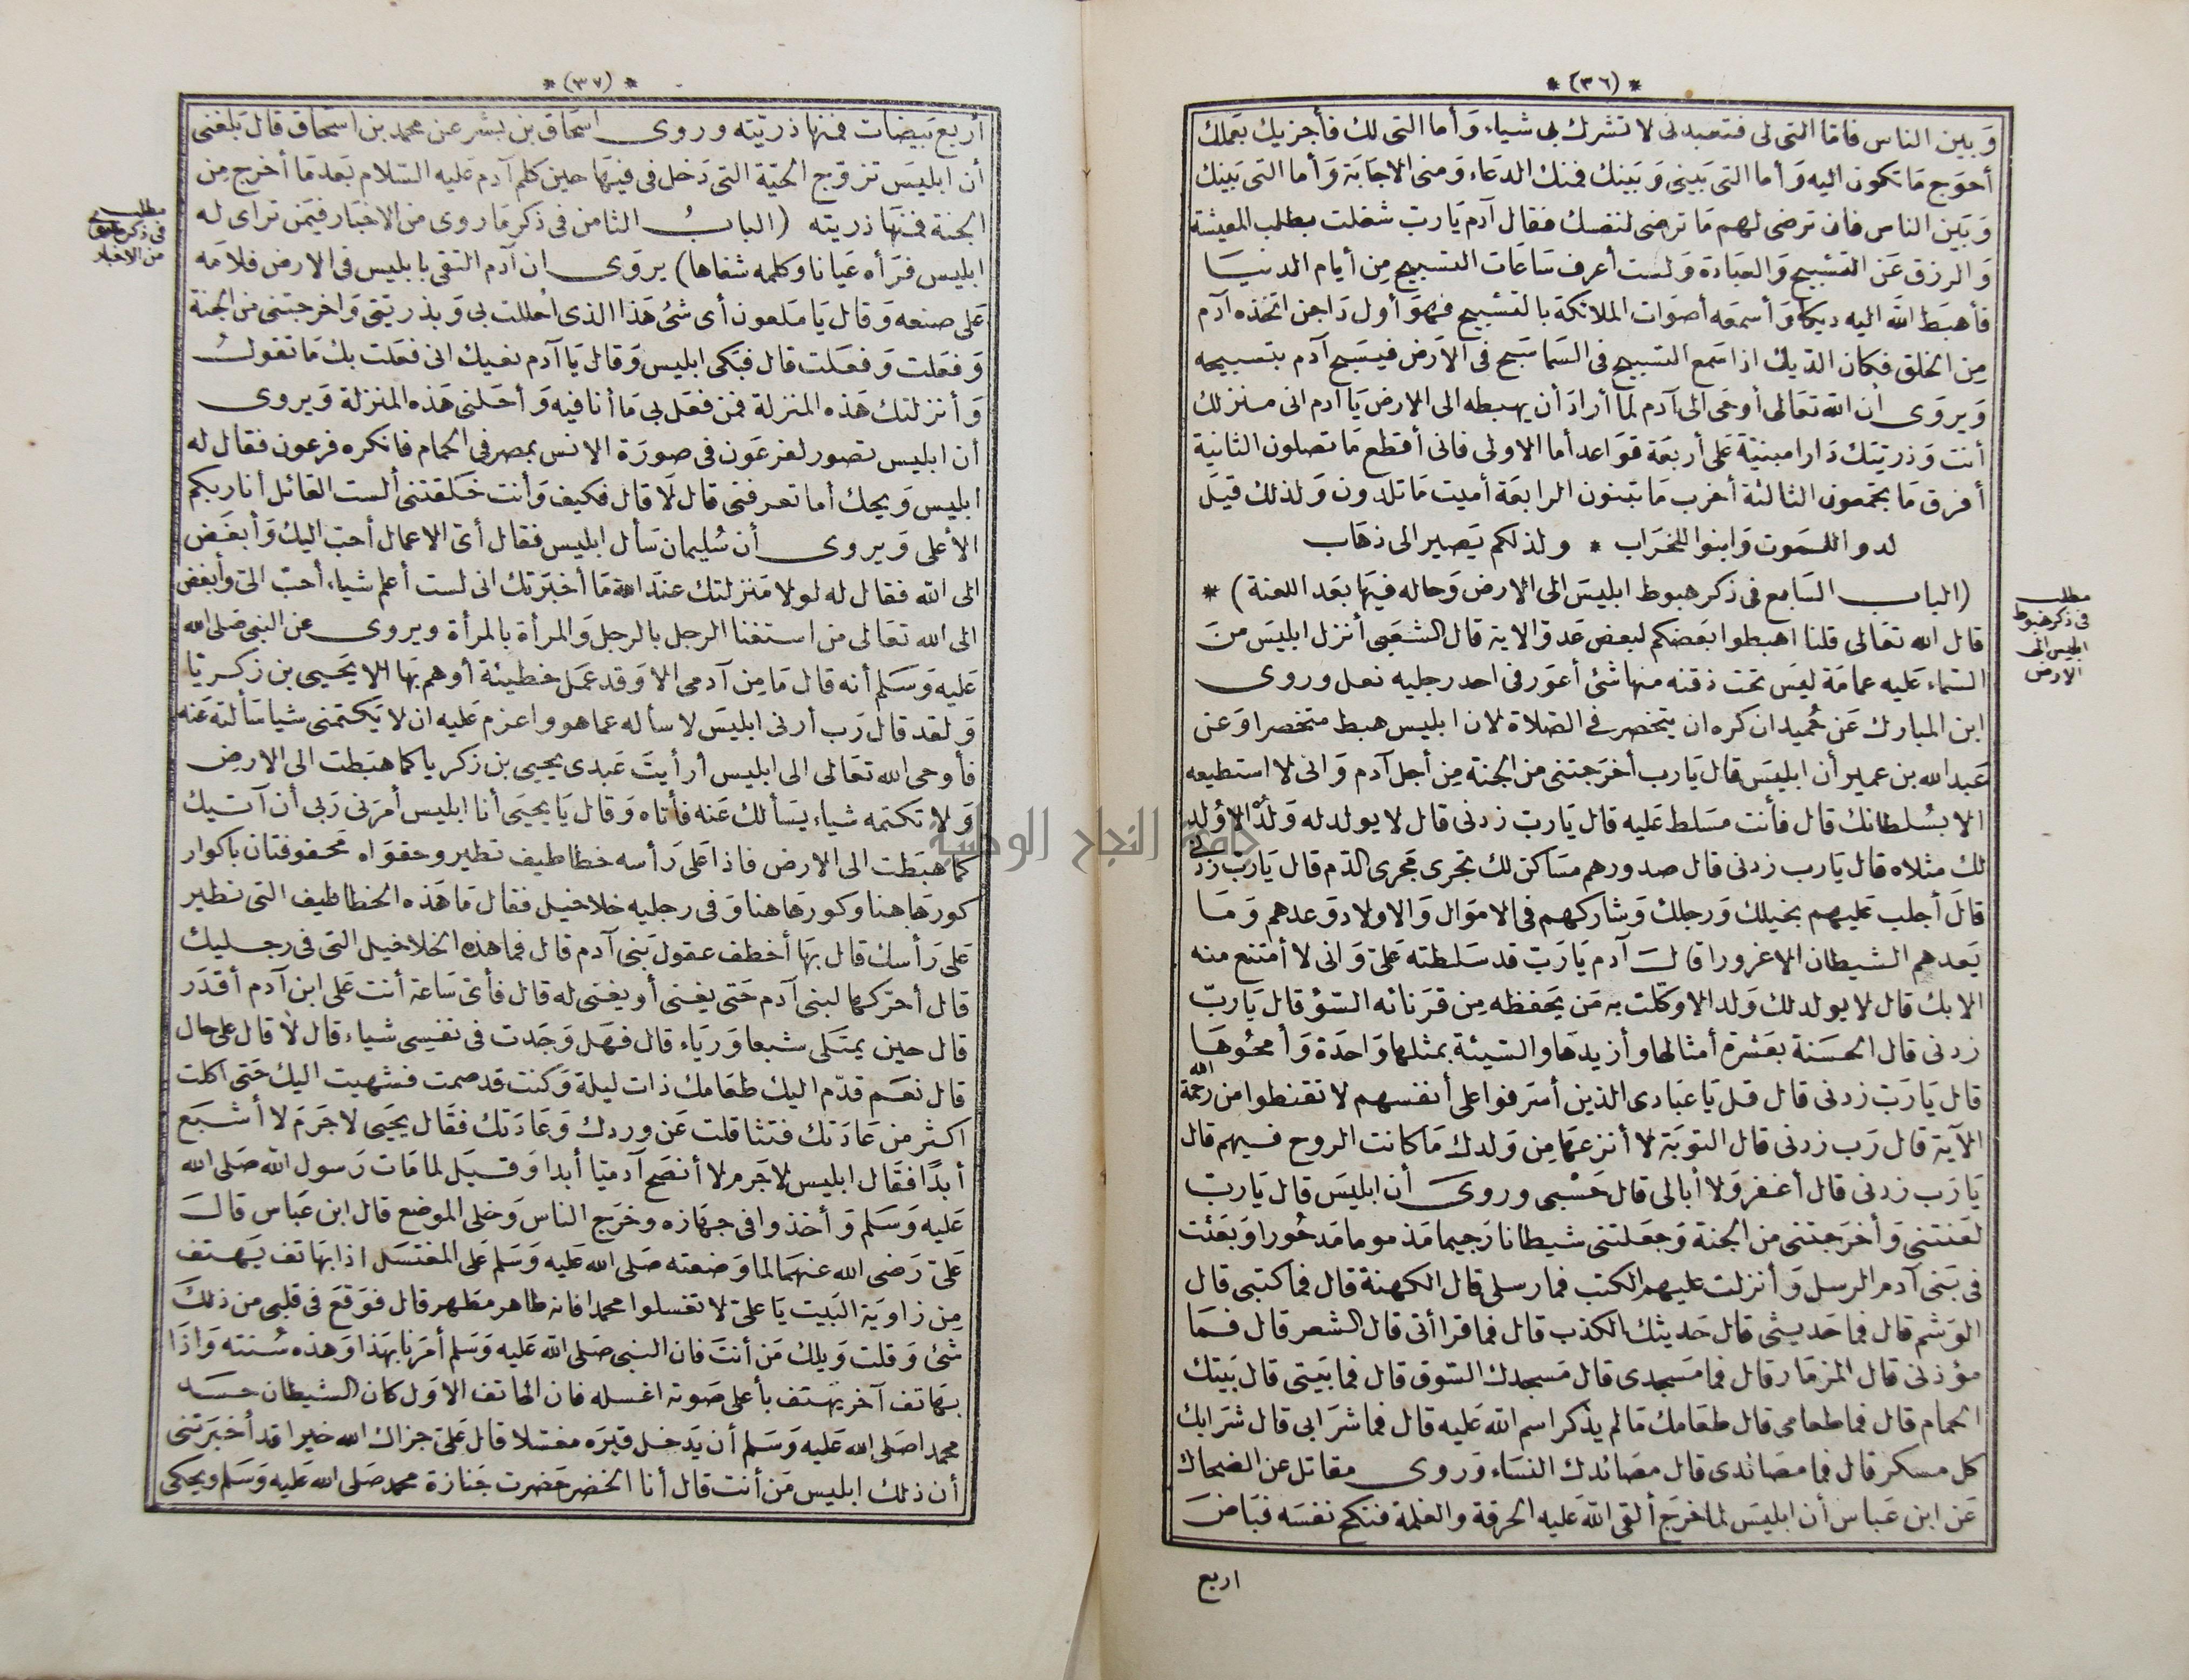 * (٣٦) *
وَبين الناس فامّا التى لى فتعبدنى لا تشرك بى شياء وَأما التى لك فأجزيك بعَملك
أحوَج مَا تكون اليه وَأما التى بَينى وَبَينك فمنك الدعَاء وَمنى الاجَابَة وَأما التى بَينك
وَبَين الناس فان ترضى لهم مَا ترضى لنفسك فقال آدم يَا ربّ شغلت بطلب المعيشة
وَالرزق عَن التسْبيح وَالعبَادة وَلست أعرف سَاعَات التسبيح مِن أيام الدنيَا
فأهبَط الله اليه ديكا وَأسمعَه أصوَات الملائكة بالتسْبيح فهوَ أول دَاجن اتخذه آدم
مِن الخلق فكان الدّيك اذا سَمع التسبيح فى السّما سَبح فى الاَرض فيسَبح آدم بتسبيحه
وَيروَى أن الله تعَالى أوحَى الى آدم لما أرادَ أن يهبطه الى الارض يَا آدم انى منزلك
أنت وَذريتك دَارا مبنيّة عَلى أربعَة قوَاعد أما الاولى فانى أقطع مَا تصلون الثانية
أفرق مَا تجمعون الثالثة أخرب مَا تبنون الرابعَة أميت مَا تلدون وَلذلك قيَل
لدوا للمَوت وَابنوا للخرَاب * ولذلكم يَصير الى ذهَاب
(الباب السَابع فى ذكر هبوط ابليسَ الى الارض وَحاله فيهَا بعَد اللعنة) *
قال الله تعَالى قلنا اهبطوا بعَضكم لبعض عَدوّ الاية قال الشعَبى أنزل ابليسَ منَ
السّماء عَليه عمامَة ليسَ تحت ذقنه منها شئ أعوَر فى احد رجليه نعل وروى
ابن المبارك عَن حُميد ان كره ان يتخصر فى الصّلاة لان ابليس هبط متخصرا وَعن
عَبد الله بن عمير أن ابليسَ قال يَارب أخرَجتنى من الجنة مِن أجل آدم وَانى لا استطيعه
الا بسُلطانك قال فأنت مسَلط عَليه قال يَاربّ زدنى قال لا يولد له وَلدْ الا وُلد
لك مثلاه قال يَارب زدنى قال صدورهم مسَاكن لك تجرى مجرى الدّم قال يَاربّ زدنى
قالَ أجلب عَليهم بخيلك وَرجلك وَشاركهم فى الاموَال وَالاولادوَعدهم وَمَا
يَعدهم الشيطان الا غرورا قالَ آدم يَارَبّ قد سَلطته عَلىّ وَانى لا أمتنع منه
الا بك قال لا يولد لك وَلد الا وكلت به مَن يَحفظه مِن قرَنائه السّؤ قال يَاربّ
زدنى قال الحسَنة بعَشرة أمثالها وأزيدهَا والسّيئة بمثلها وَاحدَة وَأمحُوهَا
قال يَارَبّ زدنى قال قل يَا عبَادى الذين أسرَفوا على أنفسهم لا تقنطوا من رحمة الله
الآيَة قال رَب زدنى قال التوبَة لا أنزعهَا مِن وَلدك مَا كانت الروح فيهم قال
يَا رَب زدنى قال أغفر وَلا أبالى قال حَسْبى وروىَ أن ابليسَ قال يَاربّ
لعَنتنى وَأخرَجتنى من الجنة وَجعَلتنى شيطانا رَجيما مَذموما مَدحُورا وَبعَثت
فى بَنى آدم الرسل وَأنزلت عليهم الكتب فما رسلى قال الكهنة قال فما كتبى قال
الوَشم قال فما حَديثى قال حَديثك الكذب قال فما قراأتى قال الشعر قال فمَا
مؤذنى قال المزمَار قال فما مسَجدى قال مَسجدك السّوق قال فما بَيتى قال بَيتك
الحمام قال فما طعامى قال طعَامك مَا لم يذكر اسم الله عَليه قال فما شرَابى قال شرَابك
كل مسكر قال فما مصَائدى قال مصَائدك النسَاء وَروى مقاتل عن الضحاك
عَن ابن عَباس أن ابليَس لما خرَج ألقى الله عَليه الحرقة والغلمة فنكح نفسَه فبَاضَ
اربع
مطلب
فى ذكر هبوط
ابليس الى
الارض
* (٣٧) *
أربع بَيضات فمنها ذريّته وروى اسحَاق بن بشر عن محمد بن اسحَاق قال بَلغنى
أن ابليسَ تزوّج الحيّة التى دَخل فى فيهَا حين كلم آدم عَليه السّلام بَعد مَا أخرج مِن
الجنة فمنهَا ذريته (البابُ الثامن فى ذكر مَا روى من الاخبَار فيمَن تراى له
ابليس فرَأه عَيانا وكلمه شفاها) يروَى ان آدم التقى بابليس فى الارض فلامَه
عَلى صنعه وَقال يَا مَلعون أى شئ هَذا الذى احللت بى وَبذريتى وَاخرجتنى من الجنة
وَفعَلت وَفعَلت قال فبَكى ابليس وَقال يَا آدم نعيك انى فعَلت بك مَا تقولُ
وَأنزلتك هَذه المنزلة فمن فعَل بى مَا أنا فيه وَأحَلنى هَذه المنزلة وَيروى
أن ابليس تصور لفرعَون فى صورَة الانس بمصر فى الحمام فانكره فرعون فقال له
ابليس وَيحك أما تعرفنى قال لَا قال فكيف وَأنت خَلقتنى ألست القائل أنا ربكم
الأعلى وَيروى أن سُليمان سَأل ابليس فقال أىّ الاعمال أحبّ اليك وَأبغَض
الى الله فقال له لولا مَنزلتك عندَ الله مَا أخبَرتك انى لست أعلم شياء أحبّ الىّ وأبغض
الى الله تعَالى من استغنا الرجل بالرجل وَالمرأة بالمرأة ويروى عن النبى صَلى الله
عَليه وَسَلم أنه قال مَا مِن آدمى الا وَقد عمَل خطيئة أوهم بهَا الا يحَيى بن زكريّا
وَلقد قال رَب أرنى ابليسَ لا سأله عما هو واعزم عَليه ان لا يَكتمنى شيا سَألته عَنه
فأوحى الله تعَالى الى ابليس أرأيتَ عَبدى يحيى بن زكريا كما هبَطت الى الارض
وَلا تكتمه شياء يَسألك عَنه فأتاه وَقال يَا يحيَى أنا ابليس أمرَنى رَبى أن آتيك
كما هبَطت الى الارض فاذا عَلى رَأسه خطاطيف تطير وحقوَاه محَفوفتان باكوار
كورهَا هنا وكورهَا هنا وَفى رجليه خلاخيل فقال مَا هَذه الخطاطيف التى تطير
عَلى رَأسك قال بهَا أخطف عقول بَنى آدم قال فما هذه الخلاخيل التى فى رجليك
قال أحرّكها لبنى آدم حَتى يغنى أو يغنى له قال فأىّ سَاعة أنت عَلى ابن آدم أقدَر
قال حين يمتَلى شبعا وَريَاء قال فهَل وَجَدت فى نفسِى شياء قال لَا قال على حال
قال نعَم قدّم اليك طعَامك ذات ليلة وَكنت قد صمت فشهيت اليك حَتى اكلت
اكثر من عَادَتك فتثاقلت عَن وردك وَعَادَتك فقَال يحَيى لا جَرَمَ لا أشبَع
أبدًا فقَال ابليس لا جَرم لا أنصَح آدميّا أبدا وَقيَل لما مَات رَسول الله صَلى الله
عَليه وَسَلم وَأخذوا فى جهازه وخرَج الناس وَخلى الموضع قال ابن عَباس قالَ
عَلىّ رَضى الله عنهَما لما وَضعته صَلى الله عَليه وَسَلم عَلى المغتسَل اذا بهَاتف يَهتف
مِن زاويَة البَيت يَا علىّ لا تغسلوا محمدا فانه طاهر مطَهر قال فوَقعَ فى قلبى من ذلكَ
شئ وَقلت وَيلك مَن أنتَ فان النبى صَلى الله عَليه وَسَلم أمرَنا بهَذا وَهذه سُنته وَاذَا
بهَاتف آخر يَهتف بأعلى صَوته اغسله فان الهاتف الاوَل كان الشيطان حسَد
محمدا صَلى الله عَليه وَسَلم أن يَدخل قبرَه مغسّلا قال عَلىّ جزاك الله خيرا قد أخبرَتنى
أن ذلك ابليس فمَن أنت قال أنا الخضر حَضرت جَنازة محمد صَلى الله عَليه وَسَلم ويحكى
مطلب
فى ذكر
من الاخبار
جامعة النجاح الوطنية